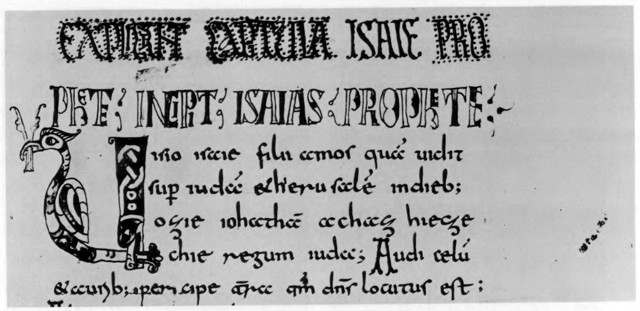 EXPLICIT CAPITULA ISAIE PRO
PHETE; INCIPIT; ISAIAS PROPHETE:
Uisio isaie filii amos quā uidit
sup iudā & hierusalē indieb;
ozie ioathā achaz hieze
chie regum iuda; Audi celū
& aurib; percipe qm̄ dn̄s locutus est;